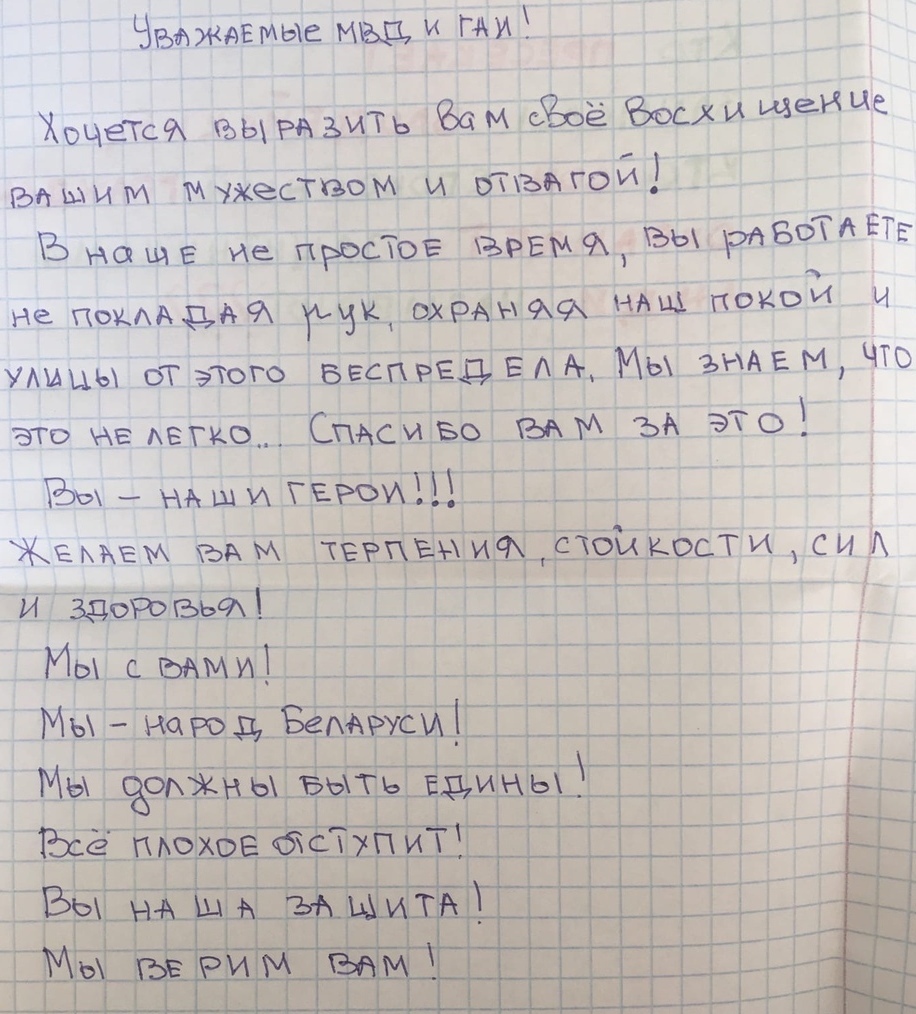 Уважаемые МВД и ГАИ!
Хочется выразить Вам своё восхищение
вашим мужеством и отвагой!
В наше не простое время, вы работаете
не покладая рук, охраняя наш покой и
улицы от этого беспредела. Мы знаем, что
это не легко... Спасибо вам за это!
Вы – наши герои!!!
Желаем вам терпения, стойкости, сил
и здоровья!
Мы с вами!
Мы – народ Беларуси!
Мы должны быть едины!
Всё плохое отступит!
Вы наша защита!
Мы верим вам!